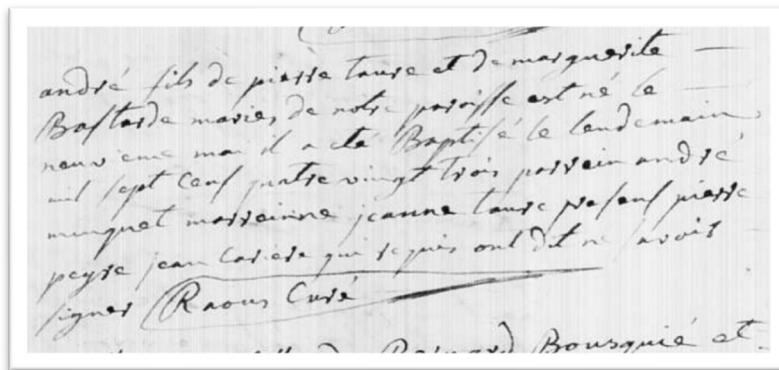 andré fils de pierre taure et de marguerite
Bastarde mariés de notre paroisse est né le
neuvieme mai il a eté Baptisé le lendemain
mil sept cent quatre vingt trois parrein andré
minguet marreinne jeanne taure presens pierre
peyre jean cariere qui requis ont dit ne savoir
signer Raous Curé
Bousquié et